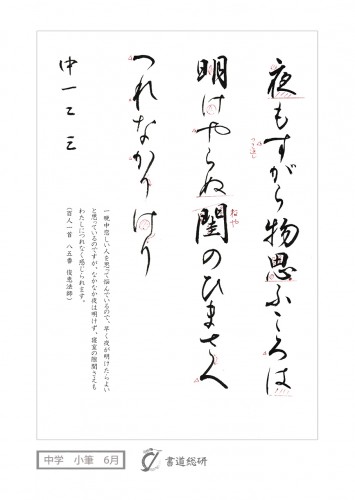 夜もすがら物思ふころは
明けやらぬ閨のひまさへ
つれなかりけり
中一二三
一晩中恋しい人を思って悩んでいるので、早く夜が明けたらよい
と思っているのですが、なかなか夜は明けず、寝室の隙間さえも
わたしにつれなく感じられます。
(百人一首 八五番 俊恵法師)
中学 小筆 6月
書道総研